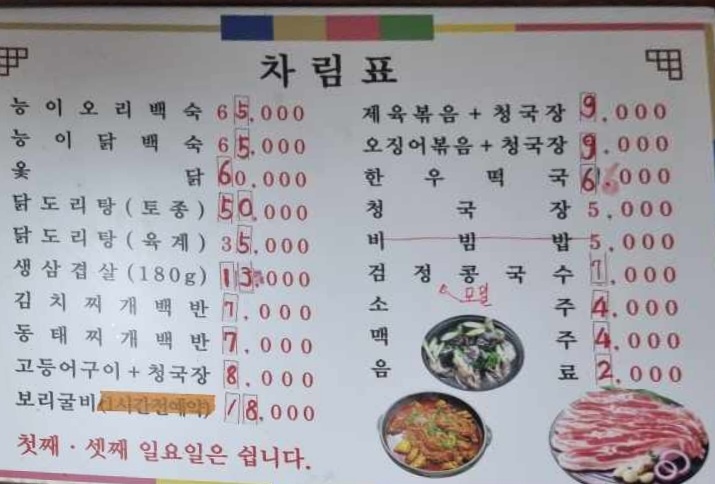 차림표
능이오리백숙 65,000
능이닭백숙 65,000
옻닭 60,000
닭도리탕(토종) 50,000
닭도리탕(육계) 35,000
생삼겹살(180g) 13,000
김치찌개백반 7,000
동태찌개백반 7,000
고등어구이+청국장 8,000
보리굴비(1시간전예약) 18,000
첫째·셋째 일요일은 쉽니다.
제육볶음+청국장 9,000
오징어볶음+청국장 9,000
한우떡국 6,000
청국장 5,000
비빔밥 5,000
검정콩국수 7,000
소주 4,000
맥주 4,000
음료 2,000